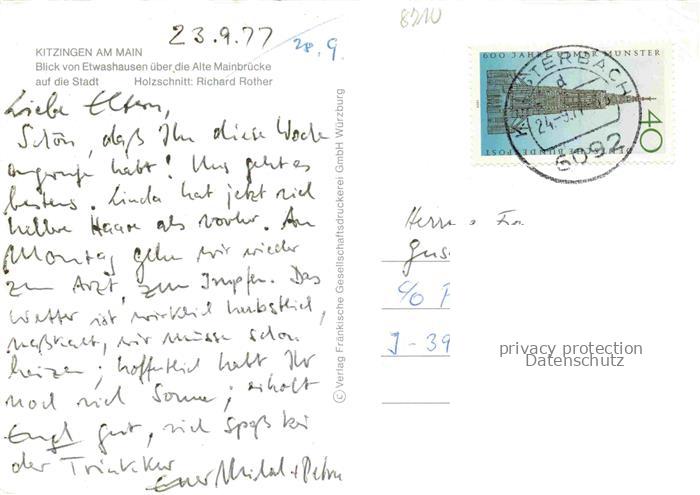 8710
23.9.77
28.9.
KITZINGEN AM MAIN
Blick von Etwashausen über die Alte Mainbrücke
auf die Stadt Holzschnitt: Richard Rother
Liebe Eltern,
Schön, daß Ihr diese Woche
angerufen habt! Uns geht es
bestens. Linda hat jetzt viel
hellere Haare als vorher. Am
Montag gehen wir wieder
zum Arzt, zum Impfen. Das
Wetter ist wirklich herbstlich,
naßkalt, wir müssen schon
heizen; hoffentlich habt Ihr
noch viel Sonne; erholt
Euch gut, viel Spaß bei
der Trinkkur
Euer Michael + Petra
© Verlag Fränkische Gesellschaftsdruckerei GmbH Würzburg
600 JAHRE ULMER MÜNSTER
DEUTSCHE BUNDESPOST
40
KELSTERBACH
d
24.-9.77
6092
Herrn
c/o
I-39
privacy protection
Datenschutz